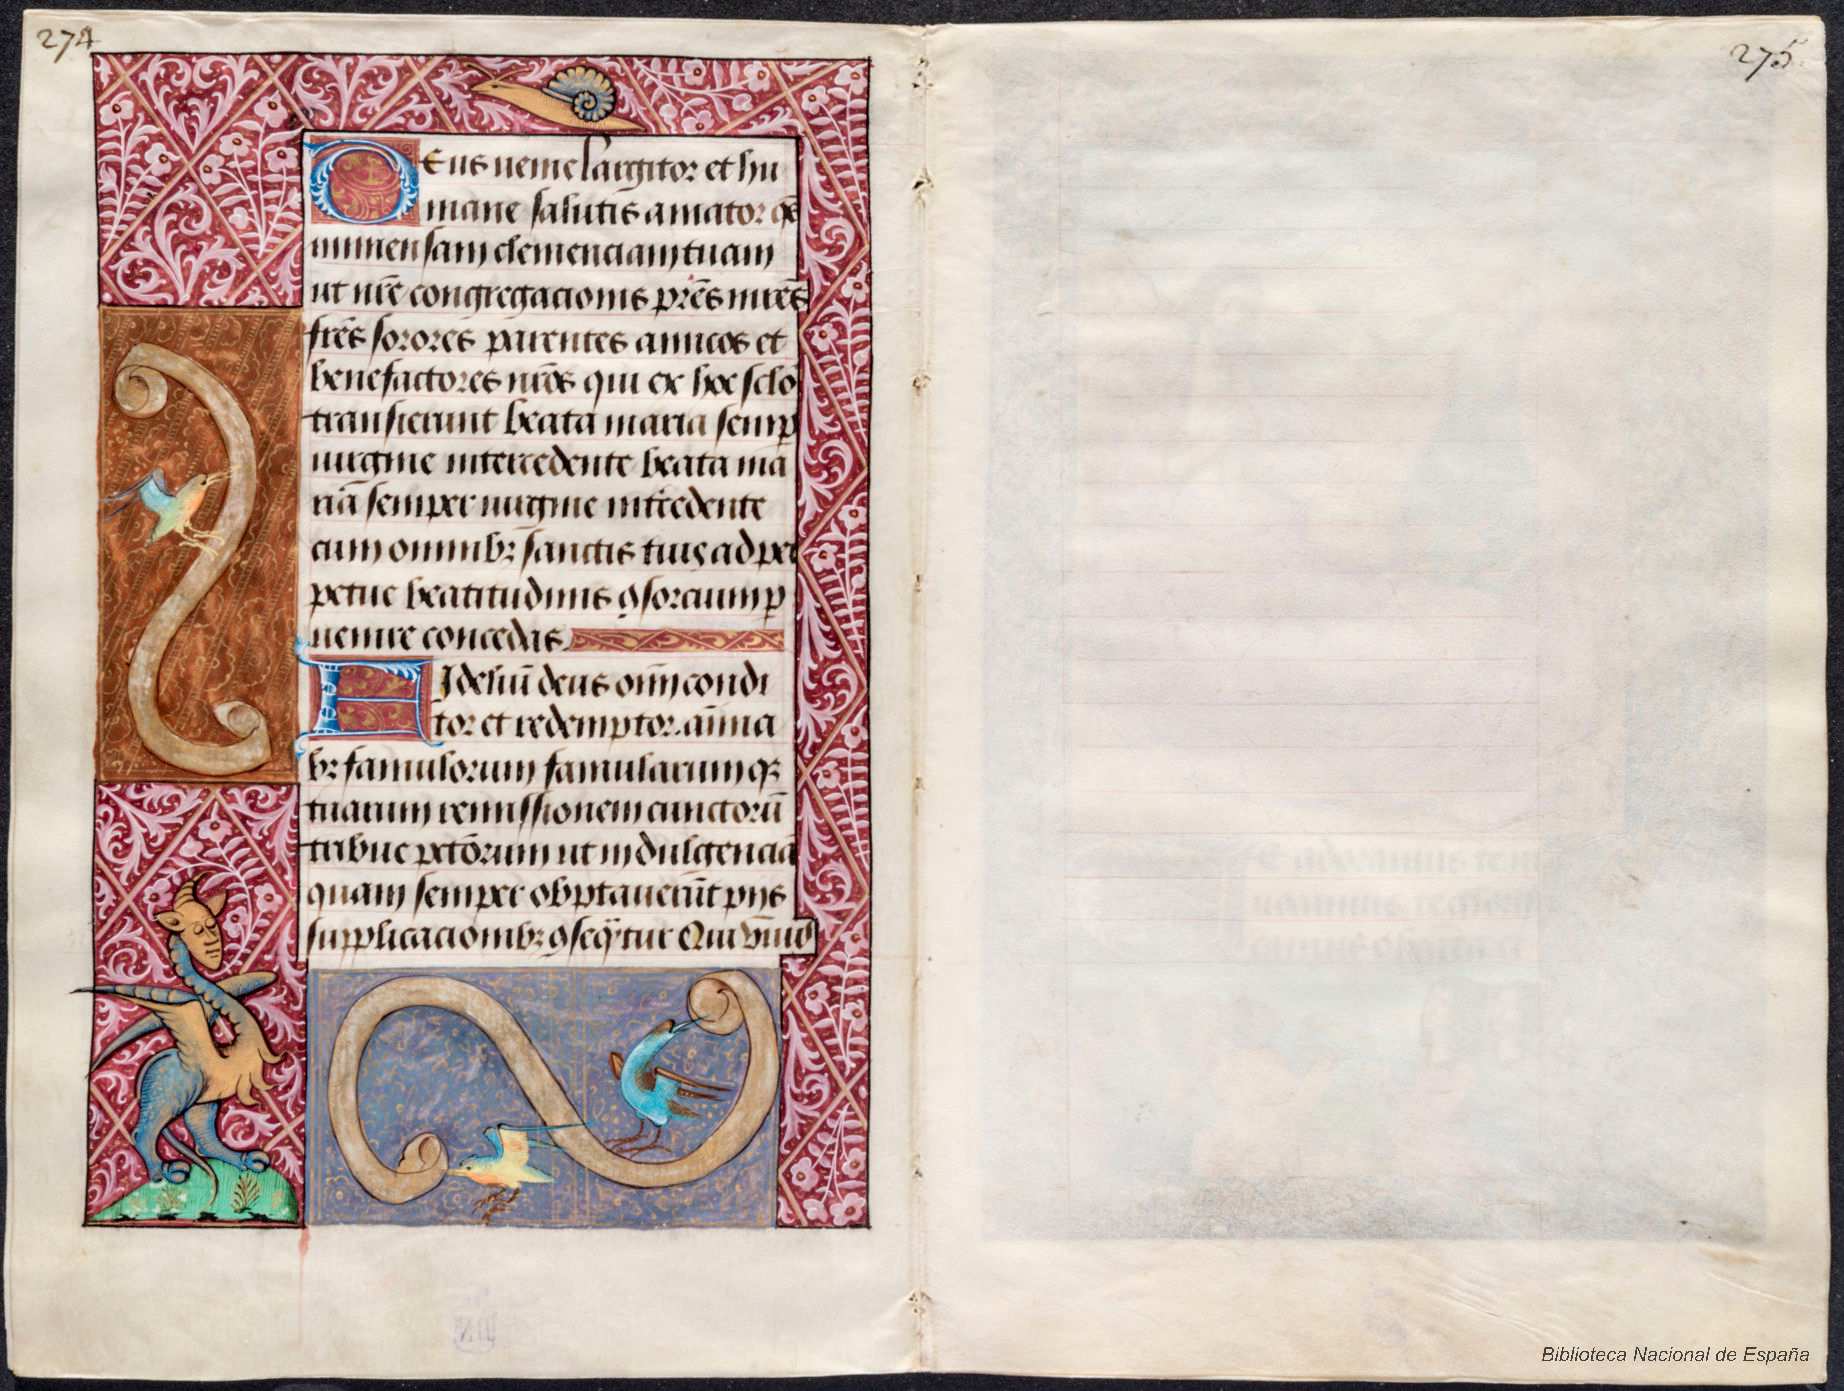 274
Deus venie largitor et hu
mane salutis amator q̄s
immensam clemenciam tuam
ut nr̄e congregacionis pr̄es mr̄es
fr̄es sorores parentes amicos et
benefactores nr̄os qui ex hoc sc̄lo
transierunt beata maria semp̄
virgine intercedente beata ma
ria semper virgine int̄cedente
cum omnibꝫ sanctis tuis ad per
petue beatitudinis ꝯsorcium p̄
venire concedas
Fideliū deus om̄ condi
tor et redemptor aīma
bꝫ famulorum famularumqꝫ
tuarum remissionem cunctorū
tribue pc̄torum ut indulgenciā
quam semper obptaverūt pijs
supplicacionibꝫ ꝯseq̄tur Qui vivis
275
E adoramus
Biblioteca Nacional de España